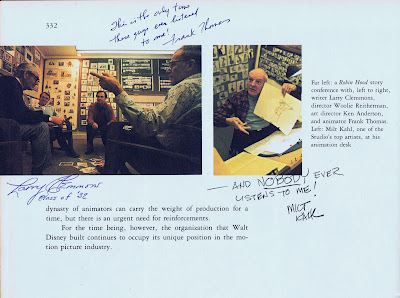 332
This is the only time
those guys ever listened
to me!
Frank Thomas
Far left: a Robin Hood story
conference with, left to right,
writer Larry Clemmons,
director Woolie Reitherman,
art director Ken Anderson,
and animator Frank Thomas.
Left: Milt Kahl, one of the
Studio's top artists, at his
animation desk
Larry Clemmons
Class of '32
— AND NOBODY EVER
LISTENS TO ME!
MILT
KAHL
dynasty of animators can carry the weight of production for a
time, but there is an urgent need for reinforcements.
For the time being, however, the organization that Walt
Disney built continues to occupy its unique position in the mo-
tion picture industry.